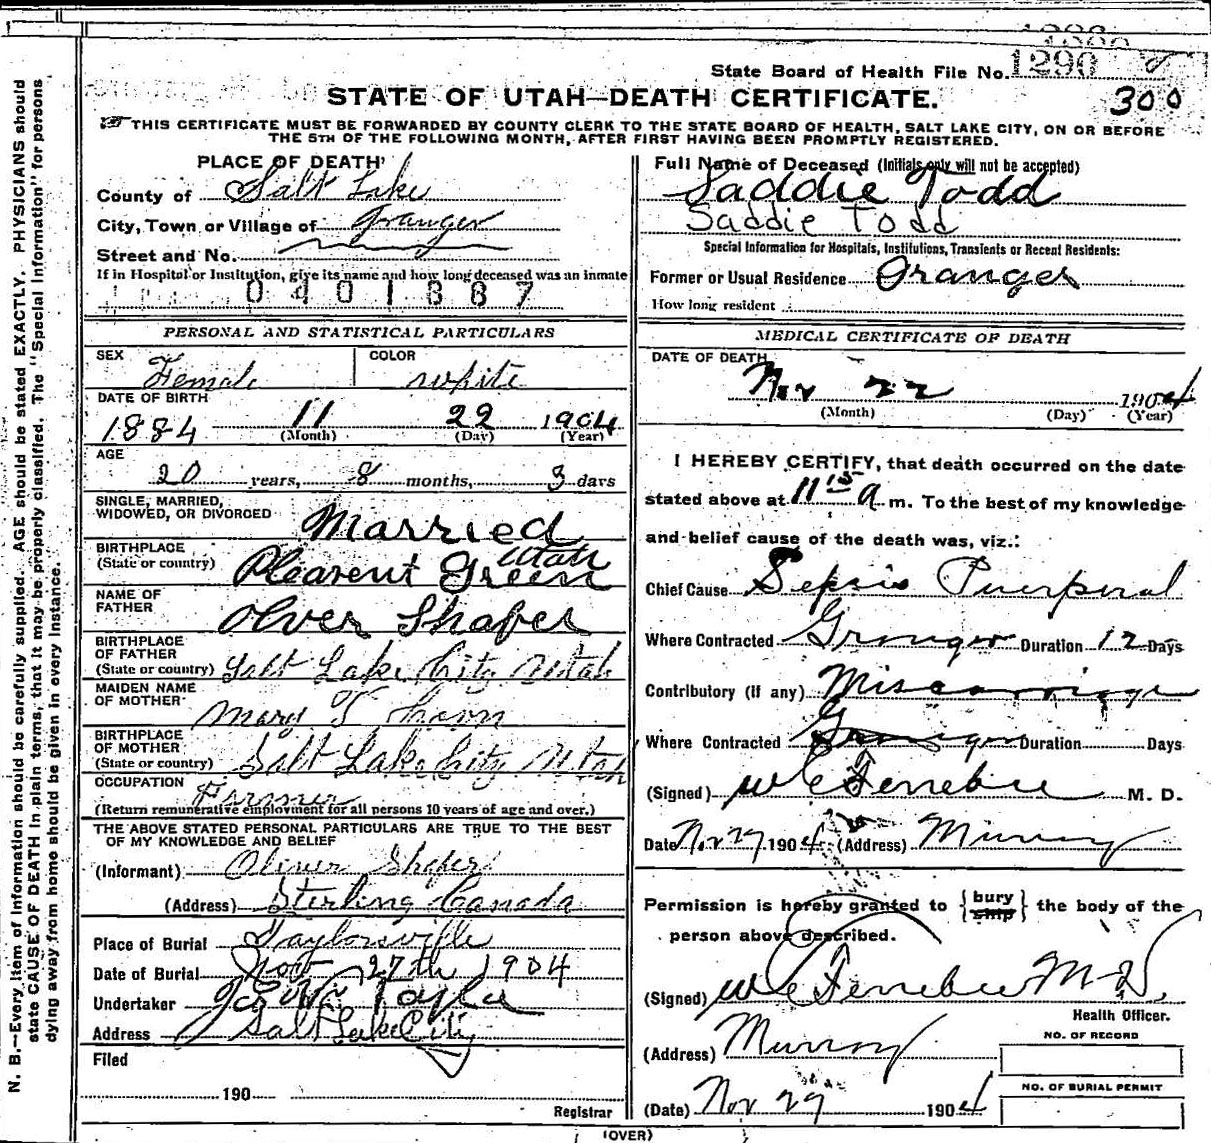 State Board of Health File No. 1290
300
STATE OF UTAH—DEATH CERTIFICATE.
THIS CERTIFICATE MUST BE FORWARDED BY COUNTY CLERK TO THE STATE BOARD OF HEALTH, SALT LAKE CITY, ON OR BEFORE
THE 5TH OF THE FOLLOWING MONTH, AFTER FIRST HAVING BEEN PROMPTLY REGISTERED.
PLACE OF DEATH
County of Salt Lake
City, Town or Village of Granger
Street and No.
If in Hospital or Institution, give its name and how long deceased was an inmate
0401387
PERSONAL AND STATISTICAL PARTICULARS
SEX Female COLOR white
DATE OF BIRTH
1884 11 22 1904
(Month) (Day) (Year)
AGE
20 years, 8 months, 3 days
SINGLE, MARRIED,
WIDOWED, OR DIVORCED Married
BIRTHPLACE
(State or country) Plearent Green Utah
NAME OF
FATHER Olver Shafer
BIRTHPLACE
OF FATHER
(State or country) Salt Lake City Utah
MAIDEN NAME
OF MOTHER Mary
BIRTHPLACE
OF MOTHER
(State or country) Salt Lake City Utah
OCCUPATION
Farmer
(Return remunerative employment for all persons 10 years of age and over.)
THE ABOVE STATED PERSONAL PARTICULARS ARE TRUE TO THE BEST
OF MY KNOWLEDGE AND BELIEF
(Informant) Oliver Shafer
(Address) Sterling Canada
Place of Burial Taylorsville
Date of Burial Nov 27th 1904
Undertaker Taylor
Address Salt Lake City
Filed
190
Registrar
Full Name of Deceased (Initials only will not be accepted)
Saddie Todd
Saddie Todd
Special Information for Hospitals, Institutions, Transients or Recent Residents:
Former or Usual Residence Granger
How long resident
MEDICAL CERTIFICATE OF DEATH
DATE OF DEATH
Nov 22 1904
(Month) (Day) (Year)
I HEREBY CERTIFY, that death occurred on the date
stated above at 11 15 a m. To the best of my knowledge
and belief cause of the death was, viz.:
Chief Cause Sepsis Puerperal
Where Contracted Granger Duration 12 Days
Contributory (if any) Miscarriage
Where Contracted Granger Duration Days
(Signed) W C Ferrebee M. D.
Date Nov 27 1904 (Address) Murray
Permission is hereby granted to {bury ship} the body of the
person above described.
(Signed) W C Ferrebee M.D.
Health Officer.
(Address) Murray
NO. OF RECORD
NO. OF BURIAL PERMIT
(Date) Nov 29 1904
(OVER)
N. B.—Every item of information should be carefully supplied. AGE should be stated EXACTLY. PHYSICIANS should
state CAUSE OF DEATH in plain terms, that it may be properly classified. The "Special Information" for persons
dying away from home should be given in every instance.